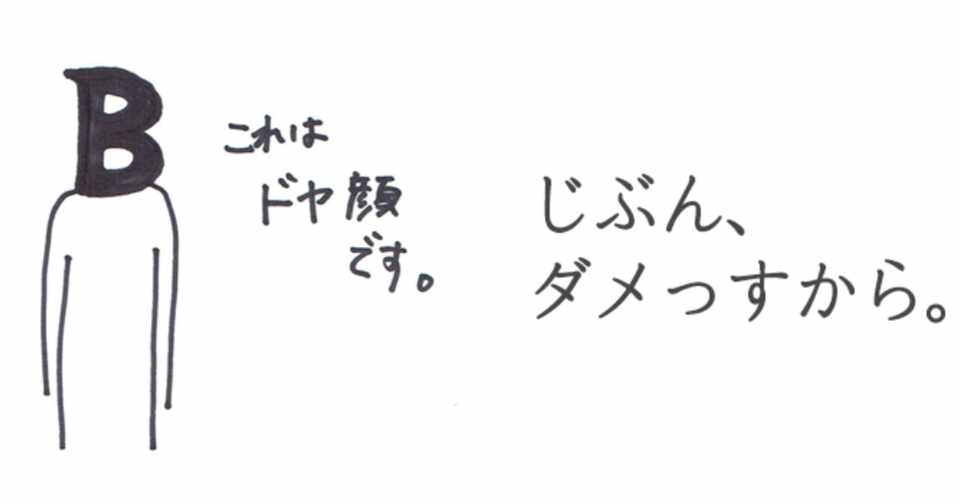 B
これは
ドヤ顔
です。
じぶん、
ダメっすから。